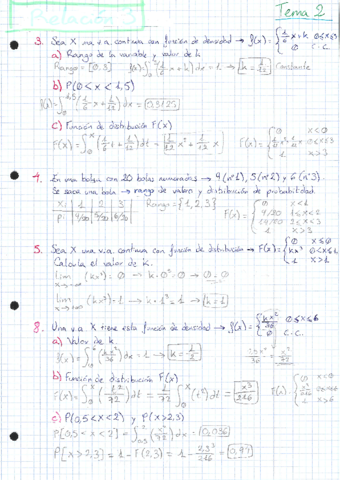 Relación 3
Tema 2
3. Sea X una v.a. continua con función de densidad → f(x) = { 1/6 x + k 0≤x≤3
0 c.c.
a) Rango de la variable y valor de k
Rango = [0,3] ∫₀³ (1/6 x + k) dx = 1 → k = 1/12 Constante
b) P(0 < x < 1,5)
∫₀^1,5 (1/6 x + 1/12) dx = 0,3125
c) Función de distribución F(x)
F(x) = ∫₀ˣ (1/6 t + 1/12) dt = 1/12 x² + 1/12 x
F(x) = { 0 x<0
1/12 x² + 1/12 x 0≤x≤3
1 x>3
4. En una bolsa con 20 bolas numeradas → 4 (nº1), 5 (nº2) y 6 (nº3)
Se saca una bola → rango de valores y distribución de probabilidad
Xi 1 2 3 Rango = {1,2,3}
Pi 4/20 5/20 6/20
F(x) = { 0 x<1
4/20 1≤x<2
9/20 2≤x≤3
1 x>3
5. Sea X una v.a. continua con función de distribución → F(x) = { 0 x≤0
kx² 0<x≤1
1 x>1
Calcula el valor de k.
lim (kx²) = 0 → k·0² = 0 → 0 = 0
lim (kx²) = 1 → k·1² = 1 → k = 1
8. Una v.a. X tiene esta función de densidad → f(x) = { kx²/36 0≤x≤6
0 c.c.
a) Valor de k
∫₀⁶ (kx²/36) dx = 1 → k = 1/2
b) Función de distribución F(x)
F(x) = ∫₀ˣ (t²/72) dt = 1/72 ∫₀ˣ (t²) dt = x³/216
F(x) = { 0 x<0
x³/216 0≤x≤6
1 x>6
c) P(0,5<x<2) y P(x>2,3)
P[0,5<x<2] = ∫ (x²/72) dx = 0,036
P[x>2,3] = 1 - F(2,3) = 1 - 2,3³/216 = 0,94